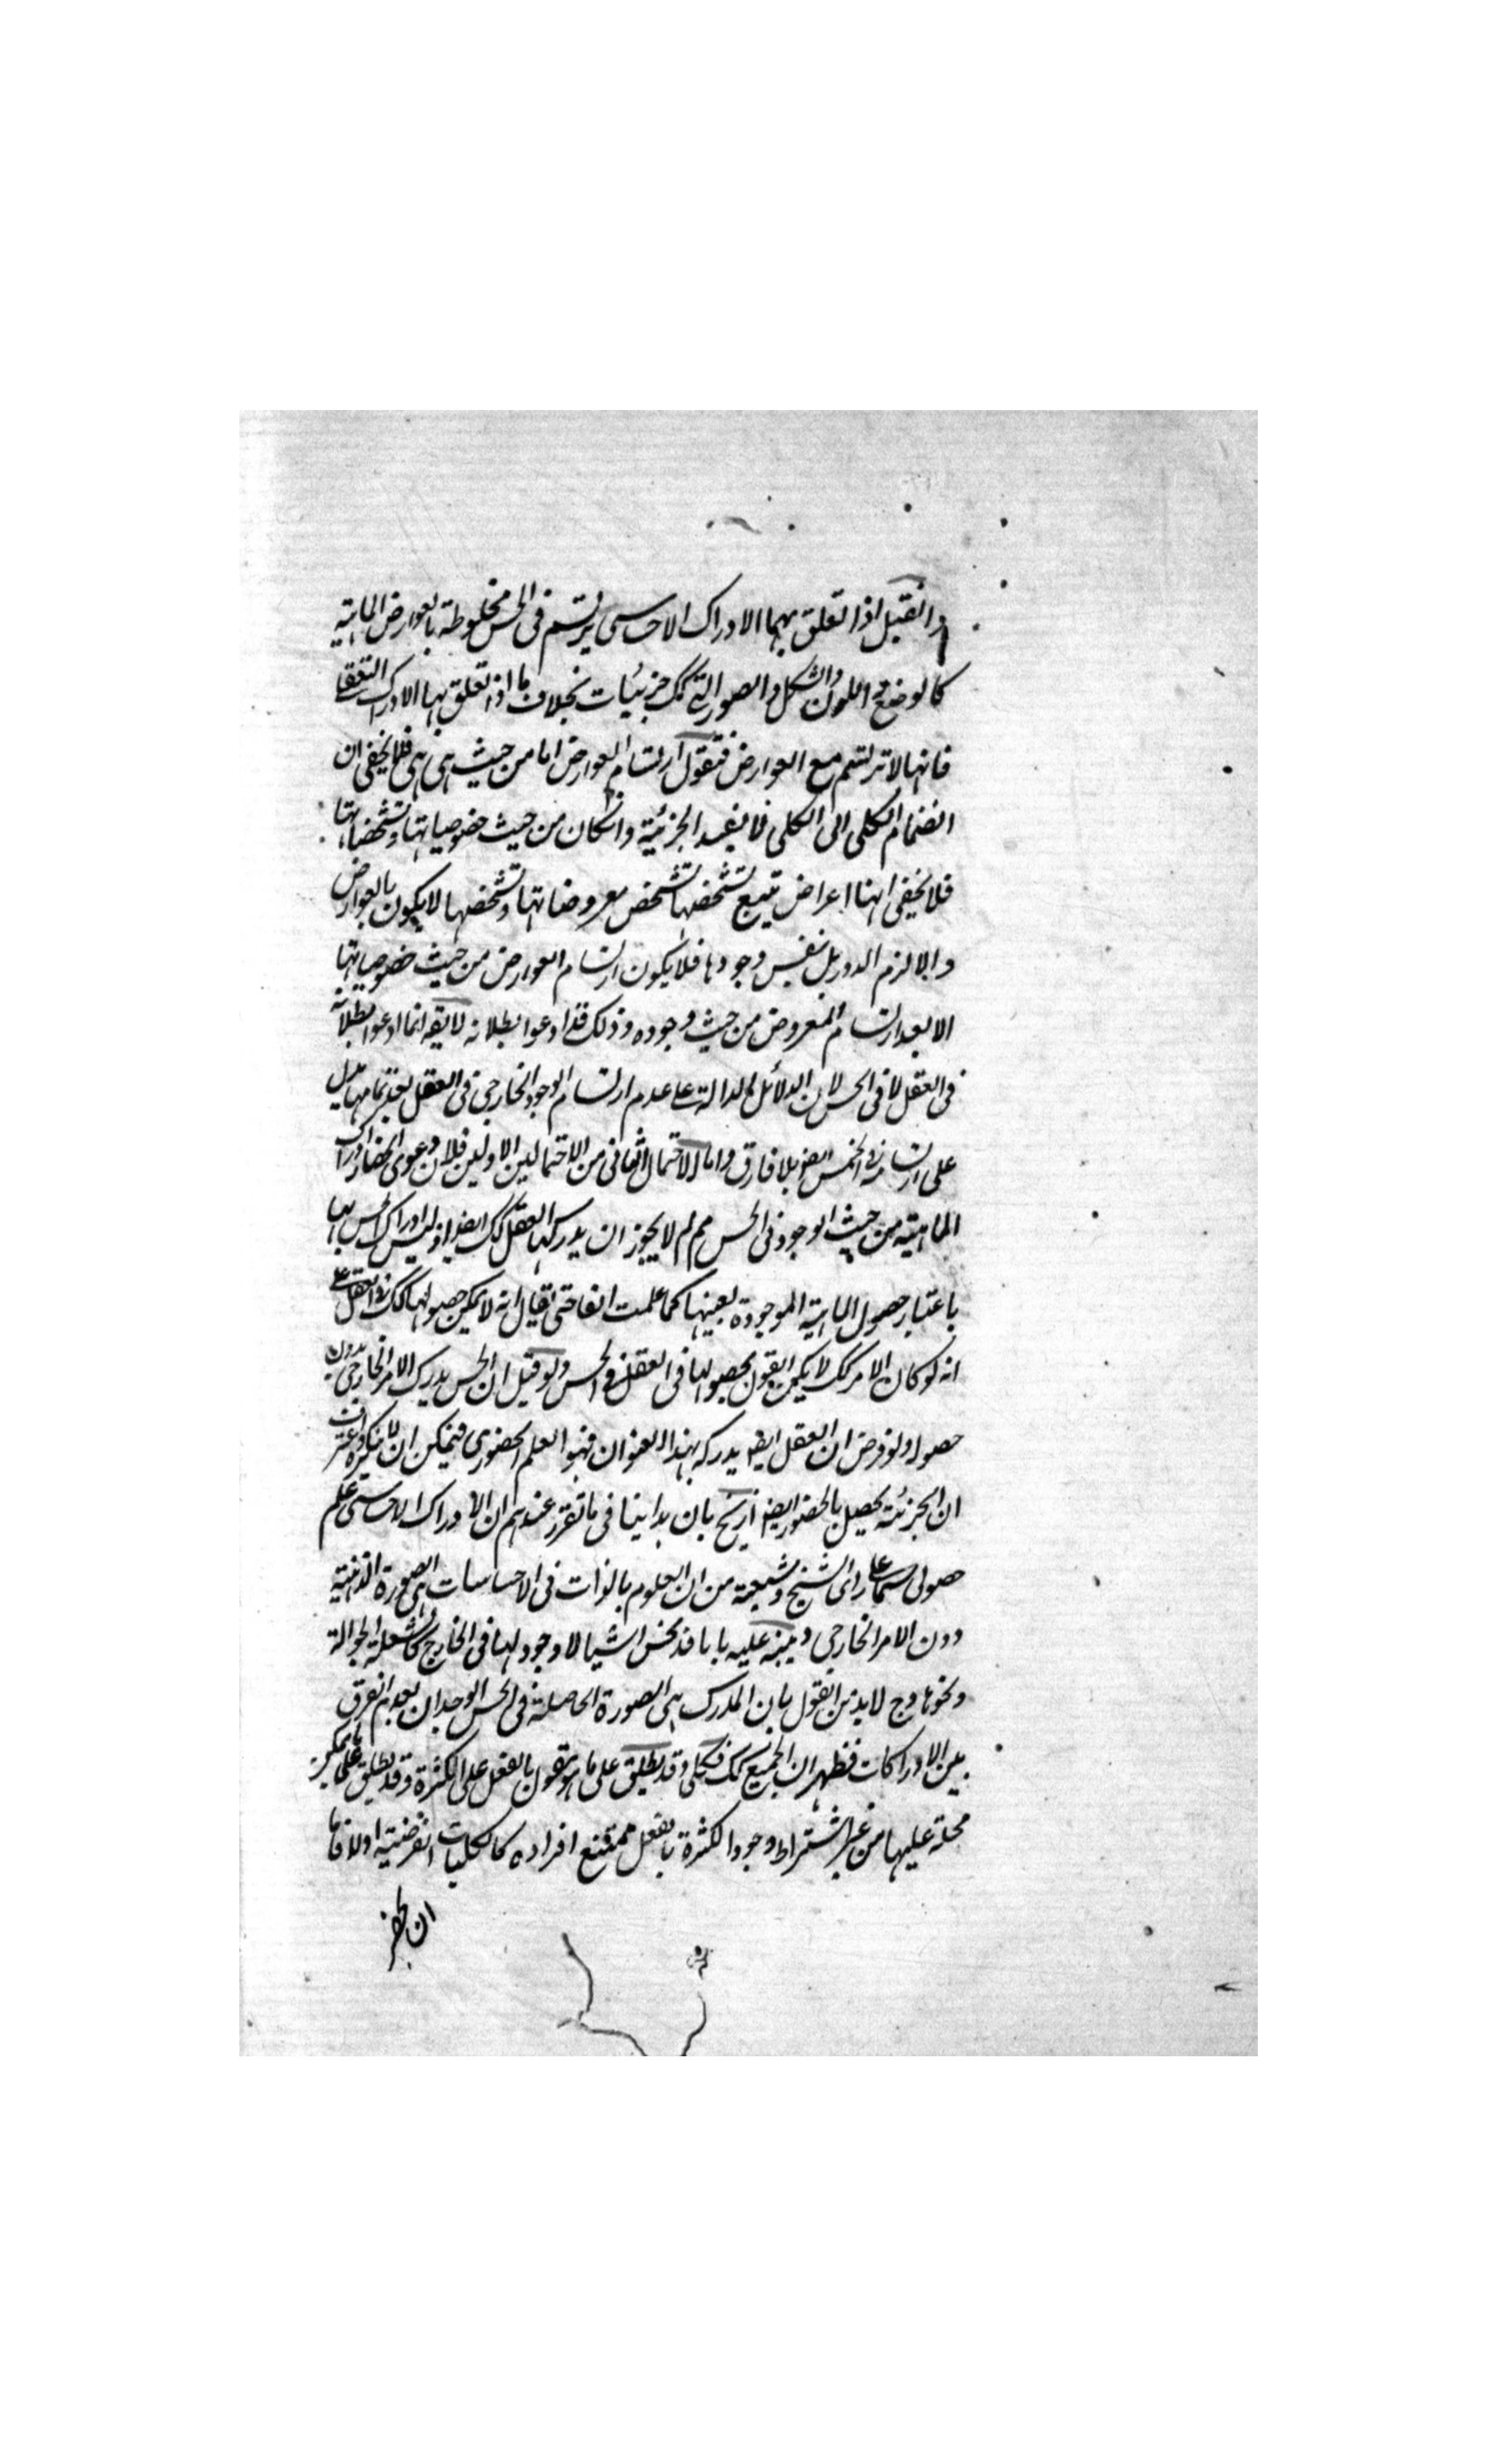 وان قيل اذا تعلق بهما الادراك الاحساسى يرتسم فى الحس مخلوطة بالعوارض المادية
كالوضع واللون والشكل والصور التى كك جزئيات بخلاف ما اذا تعلق بها الادراك التعقلى
فانها لا ترتسم مع العوارض فنقول ارتسام العوارض اما من حيث هى هى فلا يخفى ان
انضمام الكلى الى الكلى لا يفيد الجزئية وان كان من حيث خصوصياتها وتشخصاتها
فلا يخفى انها اعراض يتبع تشخصها تشخص معروضاتها وتشخصها لا يكون بالعوارض
والا لزم الدور بل بنفس وجودها فلا يكون ارتسام العوارض من حيث خصوصياتها
الا بعد ارتسام المعروض من حيث وجوده وذلك قد ادعوا بطلانه لا يقه انما ادعوا بطلانه
فى العقل لا فى الحس لان الدلائل الدالة على عدم ارتسام الوجود الخارجى فى العقل بعد تمامها يدل
على ارتسامه فى الحس ايضا بلا فارق واما الاحتمال الثانى من الاحتمالين الاولين فلان دعوى انحصار ادراك
الماهية من حيث الوجود فى الحس مم لم لا يجوز ان يدركها العقل كك ايضا اذ ليس ادراك الحس لها
باعتبار حصول الماهية الموجودة بعينها كما علمت انفا حتى يقال انه لا يمكن حصولها كك فى العقل على
انه لو كان الامر كك لا يمكن القول بحصولها فى العقل فى الحس ولو قيل ان الحس يدرك الامر الخارجى بدون
حصول ولو فرض ان العقل ايضا يدركه بهذا العنوان فهو العلم الحضورى فيمكن ان لا ينكره
ان الجزئية يحصل بالحضور ايضا ازيح بان هذا ينافى ما تقرر عندهم ان الادراك الاحساسى علم
حصولى سيما على راى الشيخ وشيعته من ان المعلوم بالذات فى الاحساسات هى الصورة الذهنية
دون الامر الخارجى وينبه عليه بانا قد نحس اشياء لا وجود لها فى الخارج كالشعلة الجوالة
ونحوها وح لا بد من القول بان المدرك هى الصورة الحاصلة فى الحس الوجدان بعدم الفرق
بين الادراكات فظهر ان الجميع كك فكلى وقد يطلق على ما هو مقول بالفعل على الكثرة وقد يطلق على ما يمكن
حمله عليها من غير اشتراط وجود الكثرة بالفعل ممتنع افراده كالكليات الفرضية او لا فاما